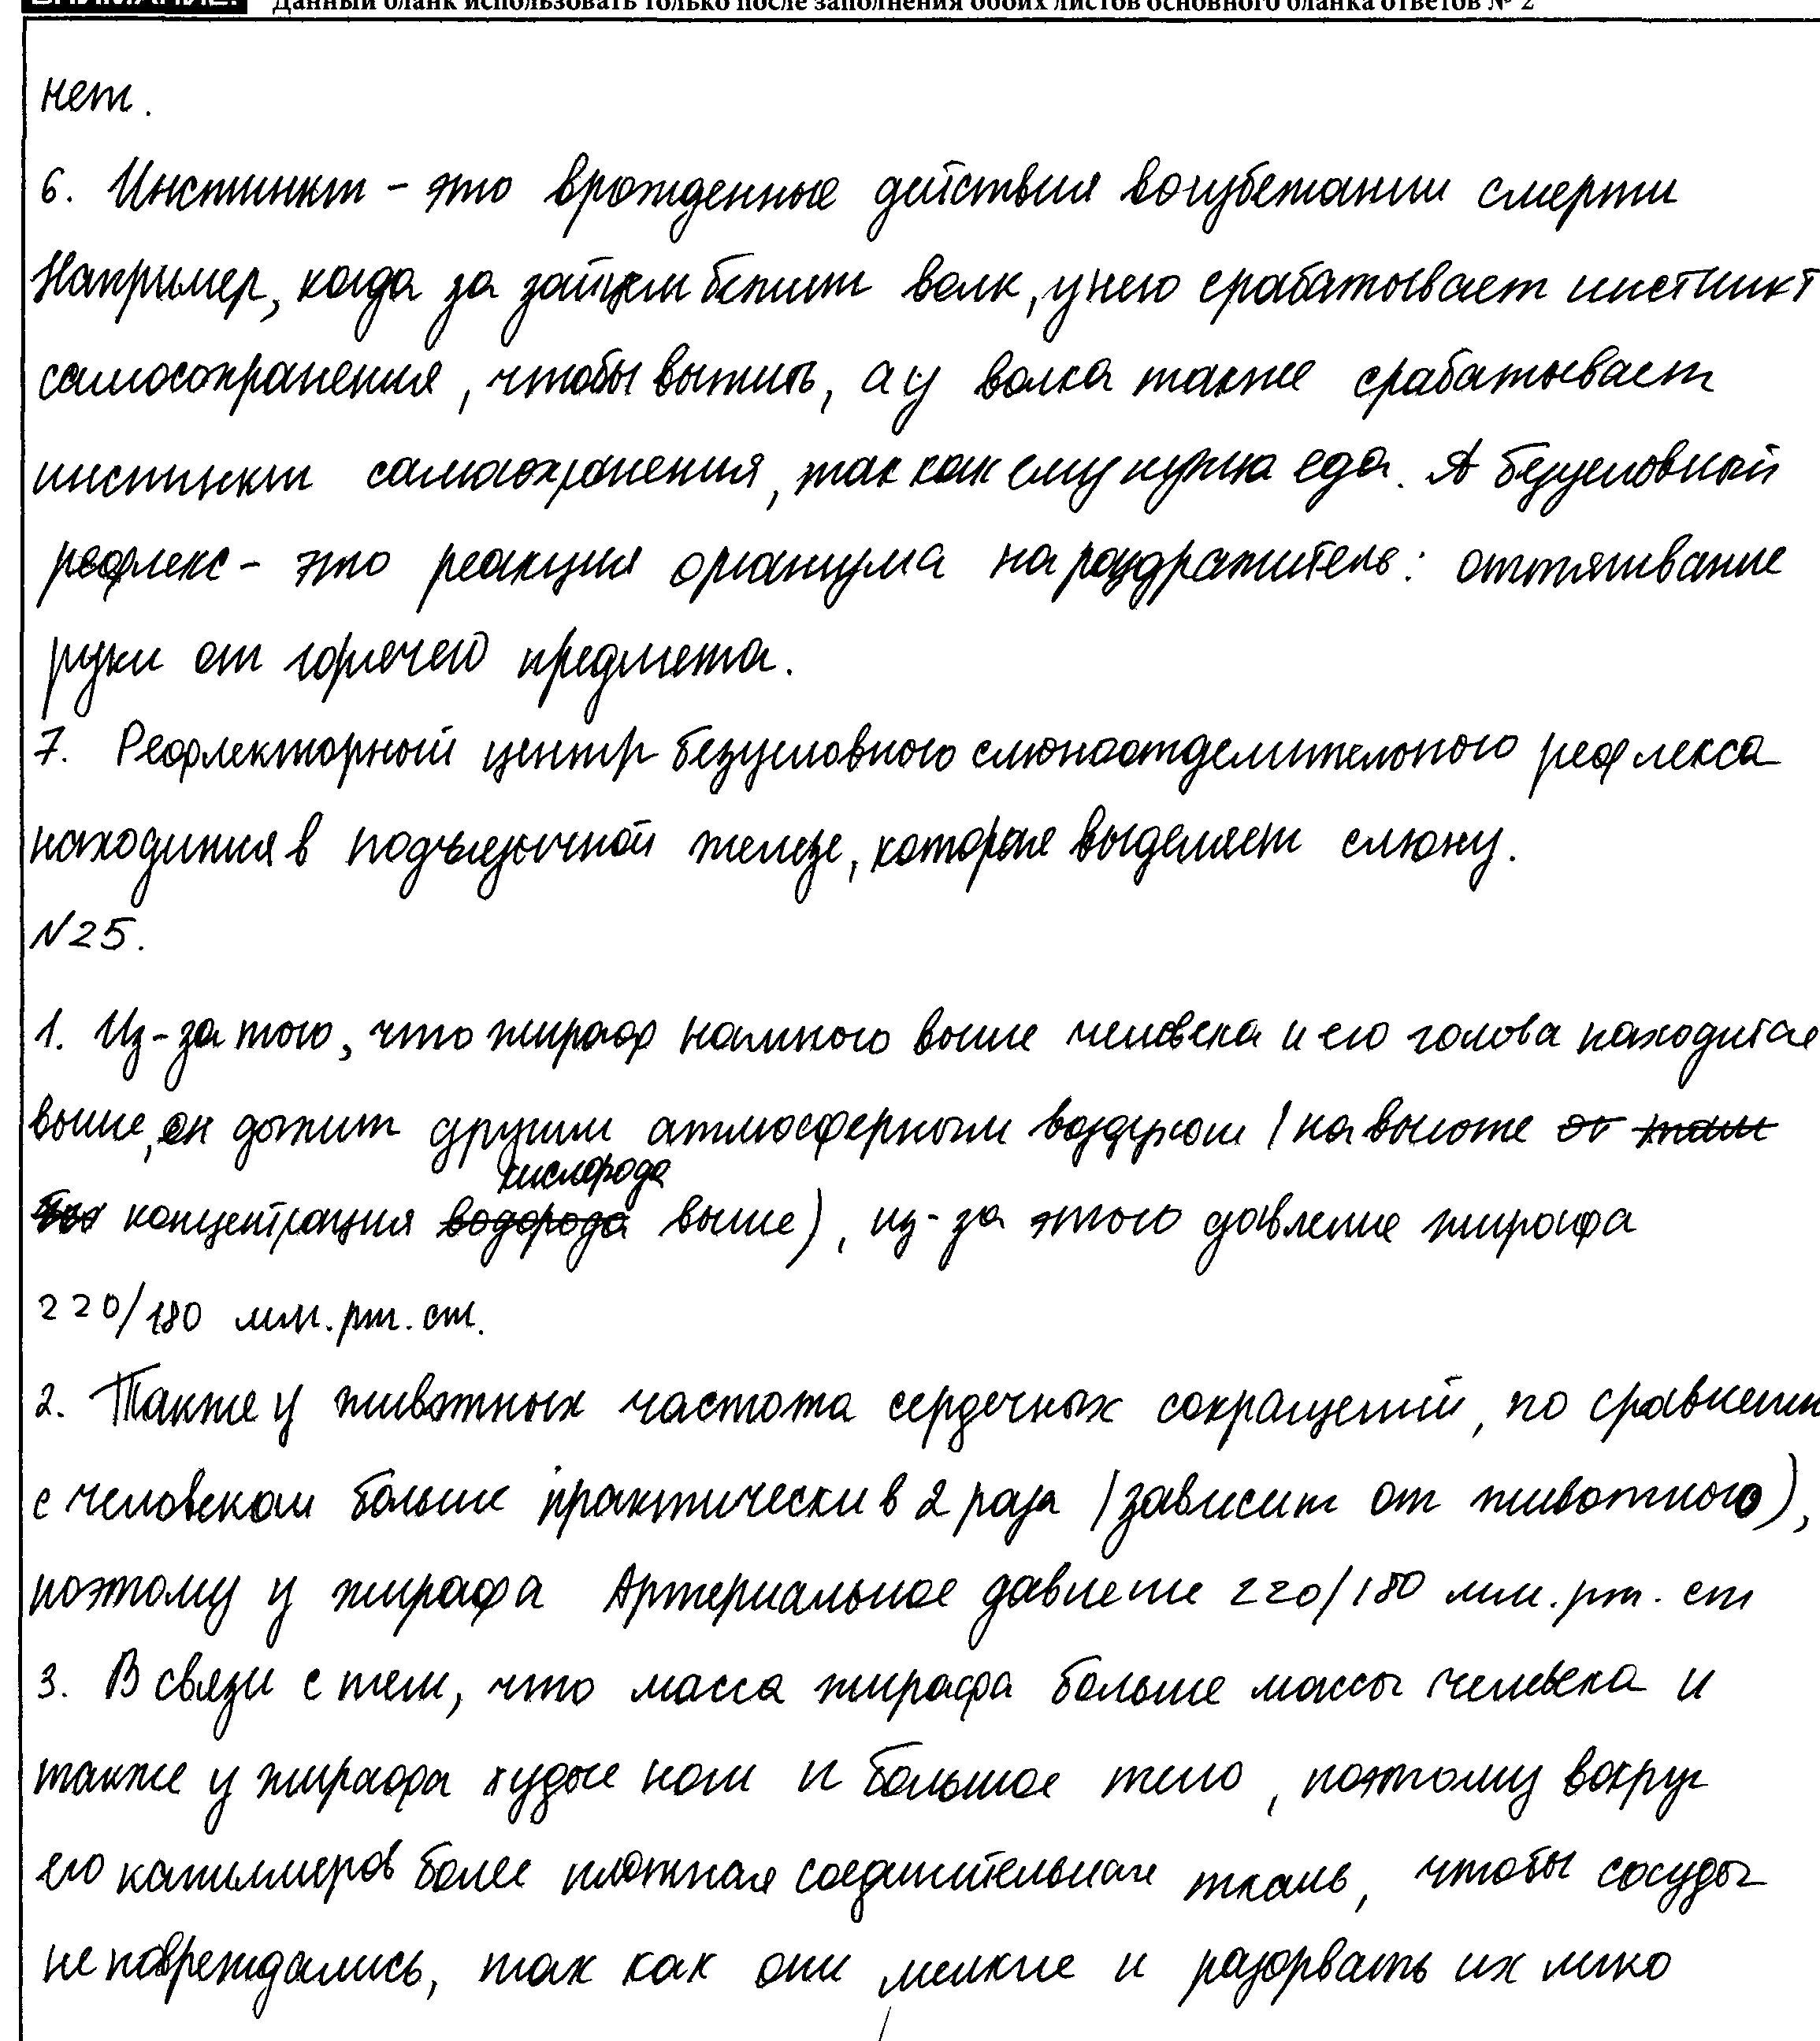 ВНИМАНИЕ! Данный бланк использовать только после заполнения обоих листов основного бланка ответов № 2
нет.
6. Инстинкт - это врожденные действия воизбежании смерти
Например, когда за зайцем бежит волк, у него срабатывает инстинкт
самосохранения, чтобы выжить, а у волка также срабатывает
инстинкт самосохранения, так как ему нужна еда. А безусловный
рефлекс - это реакция организма на раздражитель: оттягивание
руки от горячего предмета.
7. Рефлекторный центр безусловного слюноотделительного рефлекса
находится в подъязычной железе, которая выделяет слюну.
№25.
1. Из-за того, что жираф намного выше человека и его голова находится
выше, он дышит другим атмосферным воздухом (на высоте
концентрация водорода кислорода выше), из-за этого давление жирафа
220/180 мм.рт.ст.
2. Также у животных частота сердечных сокращений, по сравнению
с человеком больше практически в 2 раза (зависит от животного),
поэтому у жирафа Артериальное давление 220/180 мм.рт.ст
3. В связи с тем, что масса жирафа больше массы человека и
также у жирафа худые ноги и большое тело, поэтому вокруг
его капилляров более плотная соединительная ткань, чтобы сосуды
не повреждались, так как они мелкие и разорвать их легко